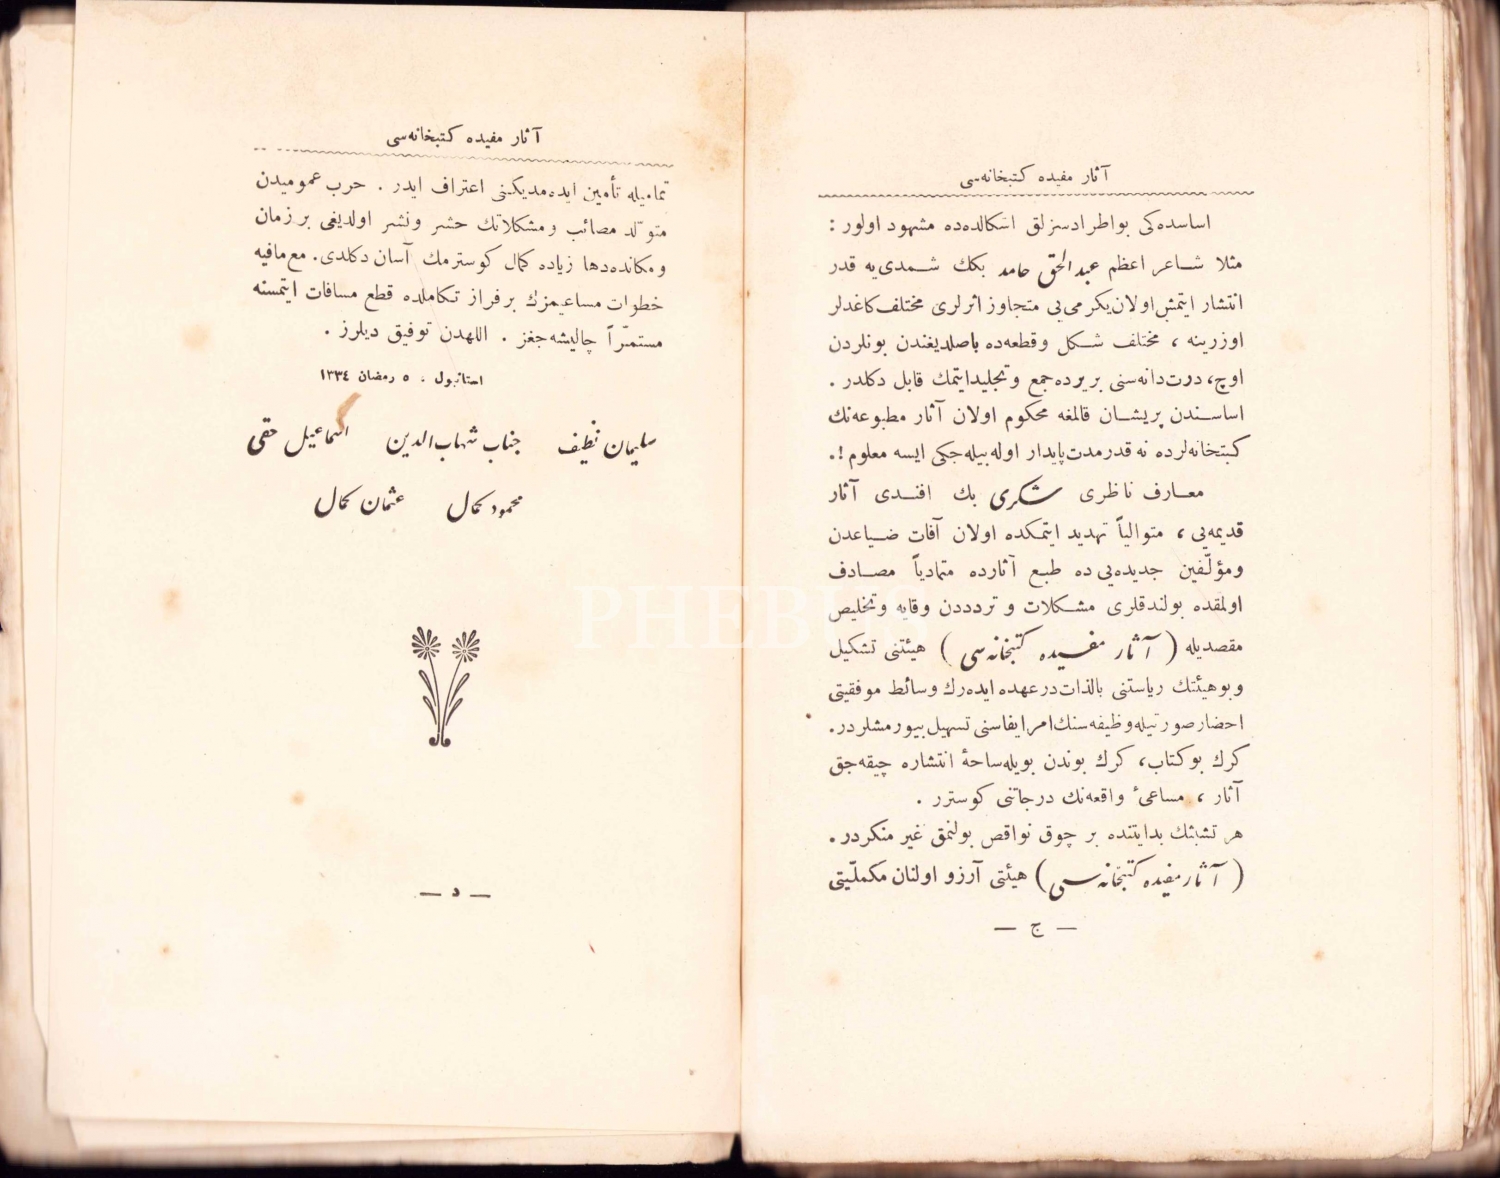 آثار مفیده کتبخانه‌سی
اساسده‌کی بواطرادسزلق اشکالده‌ده مشهود اولور :
مثلا شـاعر اعظم عبدالحق حامد بکك شـمدی‌یه قدر
انتشار ایتمش‌اولان‌یکرمی‌یی متجاوز اثرلری مختلف‌کاغدلر
اوزرینه ، مختلف شـکل وقطعه‌ده باصلدیغندن بونلردن
اوچ، درت‌دانه‌سنی بریرده‌جمع وتجلیدایتمك قابل دکلدر .
اساسـندن پریشـان قالمغه محکوم اولان آثار مطبوعه‌نك
کتبخانه‌لرده نه قدرمدت‌پایدار اوله‌بیله‌جکی ایسه معلوم !.
معـارف ناظری شکری بك افنـدی آثار
قدیمه‌یی ، متوالیاً تهدید ایتمکده اولان آفات ضـیاعدن
ومؤلّفین جدیده‌یی ده طبـع آثارده متمادیاً مصـادف
اولمقده بولندقلری مشـکلات و تردددن وقایه وتخلیص
مقصدیله ( آثار مفیده کتبخانه‌سی ) هیئتنی تشکیل
وبوهیئتك ریاستنی بالذات‌درعهده ایده‌رك وسائط موفقیتی
احضارصورتیله‌وظیفه‌سنك‌امر ایفاسنی تسهیل‌بیورمشلردر.
کرك بوکتاب، کرك بوندن بویله‌ساحهٔ انتشاره چیقه‌جق
آثار ، مساعیٔ واقعه‌نك درجاتنی کوسترر .
هر تشبثك بدایتنده بر چوق نواقص بولنمق غیر منکردر .
( آثار مفیده کتبخانه‌سی ) هیئتی آرزو اولنان مکملّیتی
— ج —
آثار مفیده کتبخانه‌سی
تمامیله تأمین ایده‌مدیکنی اعتراف ایدر . حرب عمومیدن
متولّد مصائب ومشکلاتك حشر ونشر اولدیغی برزمان
ومکانده‌دها زیاده کمال کوسترمك آسان دکلدی. مع‌مافیه
خطوات مساعیمزك برفراز تکاملده قطع مسافات ایتمسنه
مستمرّاً چالیشه‌جغز . اللهدن توفیق دیلرز .
استانبول ، ٥ رمضان ١٣٣٤
سلیمان نظیف جناب شهاب‌الدین اسماعیل حقی
محمود کمال عثمان کمال
— د —
PHEBUS